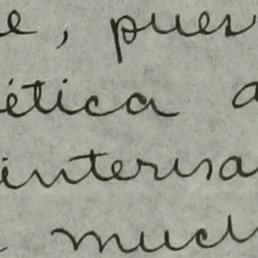 e, pues
ética a
interesa
much